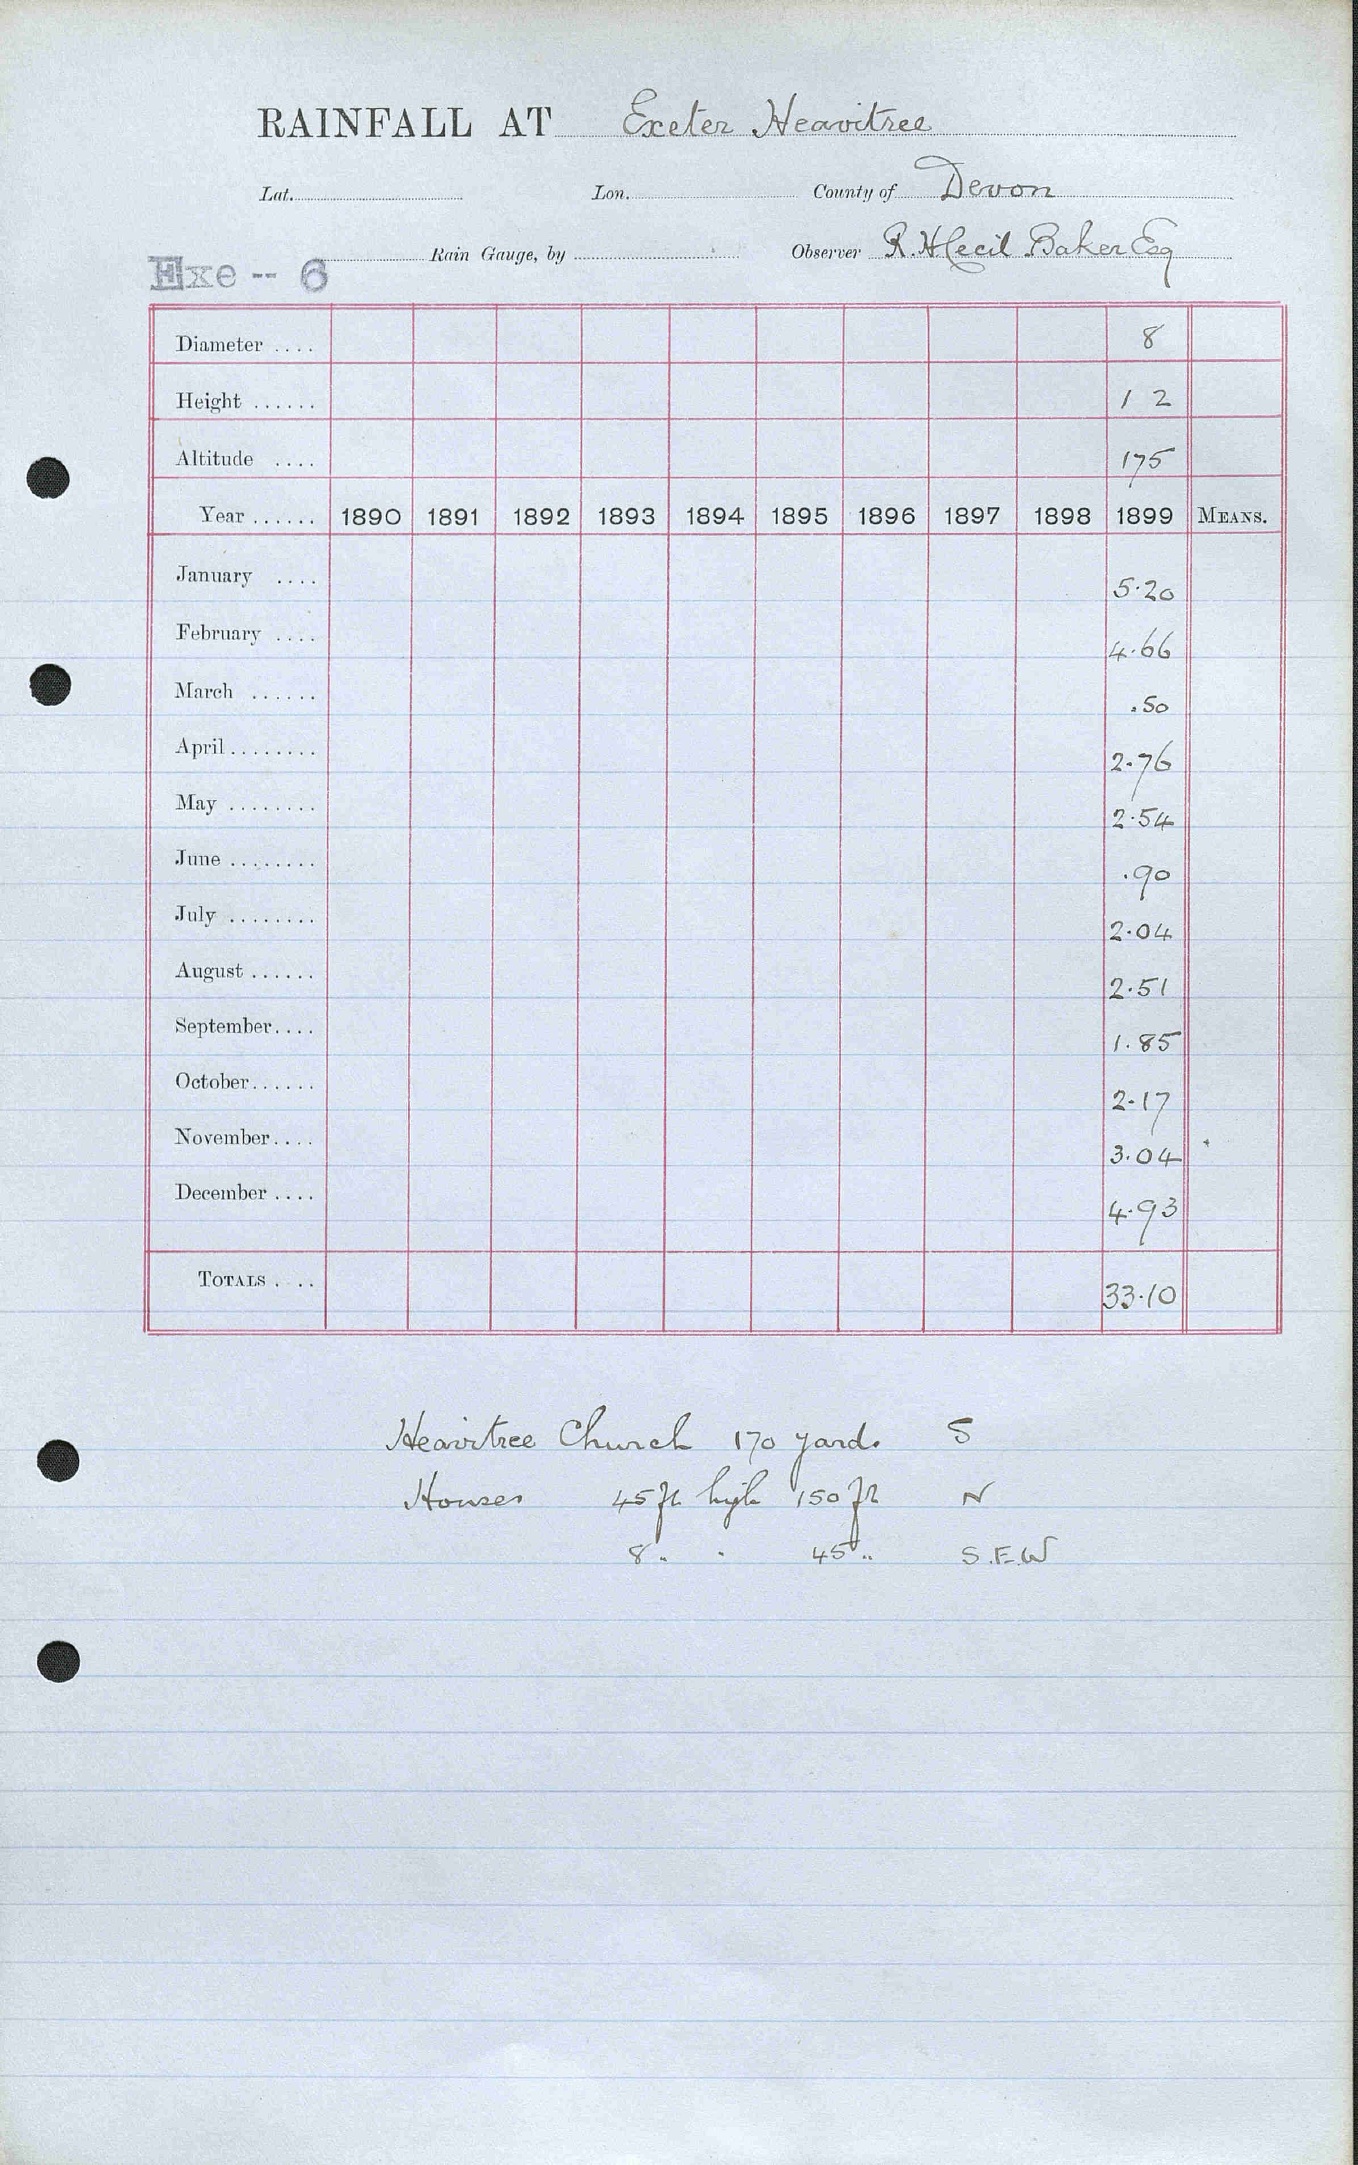 RAINFALL AT Exeter Heavitree
Lat. Lon. County of Devon
Rain Gauge, by Observer R. H. Cecil Baker Esq
Exe -- 6
Diameter .... 8
Height ...... 1 2
Altitude .... 175
Year ...... 1890 1891 1892 1893 1894 1895 1896 1897 1898 1899 MEANS.
January .... 5.20
February .... 4.66
March ...... .50
April ........ 2.76
May ........ 2.54
June ........ .90
July ........ 2.04
August ...... 2.51
September .... 1.85
October ...... 2.17
November .... 3.04
December .... 4.93
TOTALS . .. 33.10
Heavitree Church 170 yards S
Houses 45 ft high 150 ft N
8 " " 45 " S.E.W